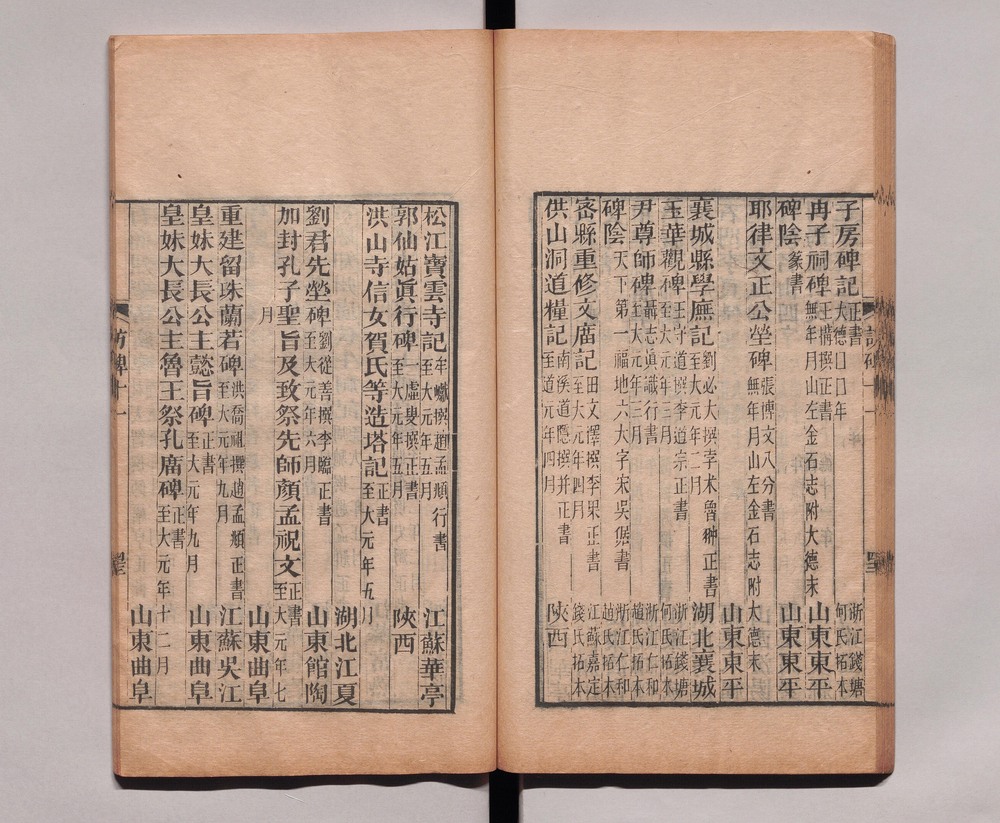 子房碑記 正書 大德囗囗年 浙江錢塘何氏拓本
冉子祠碑 王構撰正書 無年月山左金石志附大德末 山東東平
碑陰 篆書 山東東平
耶律文正公塋碑 張傅文八分書 無年月山左金石志附大德末 山東東平
襄城縣學廡記 劉必大撰孛术曾翀正書 至大元年二月 湖北襄城
玉華觀碑 王守道撰李道宗正書 至大元年三月 浙江錢塘何氏拓本
尹尊師碑 聶志眞議行書 至大元年三月 浙江仁和趙氏拓本
碑陰 天下第一福地六大字宋吳倨書 浙江仁和趙氏拓本
宻縣重修文庿記 田文澤撰李杲正書 至大元年四月 江蘇嘉定錢氏拓本
供山洞道糧記 南溪道隱撰并正書 至道元年四月 陝西
松江寶雲寺記 牟巘撰趙孟頫行書 至大元年五月 江蘇華亭
郭仙姑眞行碑 一虛叟撰正書 至大元年五月 陝西
洪山寺信女賀氏等造塔記 正書 至大元年五月 湖北江夏
劉君先塋碑 劉從善撰李臨正書 至大元年六月 山東館陶
加封孔子聖旨及致祭先師顏孟祝文 正書 至大元年七
月 山東曲阜
重建留珠蘭若碑 洪喬祖撰趙孟頫正書 至大元年九月 江蘇吳江
皇妹大長公主懿旨碑 正書 至大元年九月 山東曲阜
皇妹大長公主魯王祭孔庿碑 正書 至大元年十二月 山東曲阜
訪碑十一